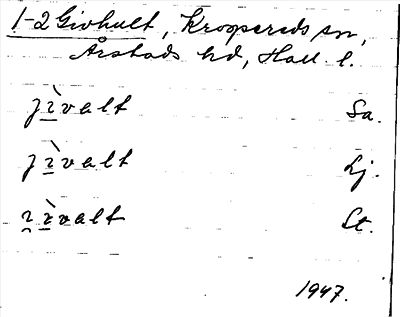 1-2 Givhult, Kropsereds sn,
Årstads hd, Hall. l.
jìvalt Sa.
jìvalt Lj.
ìvalt St.
1947.